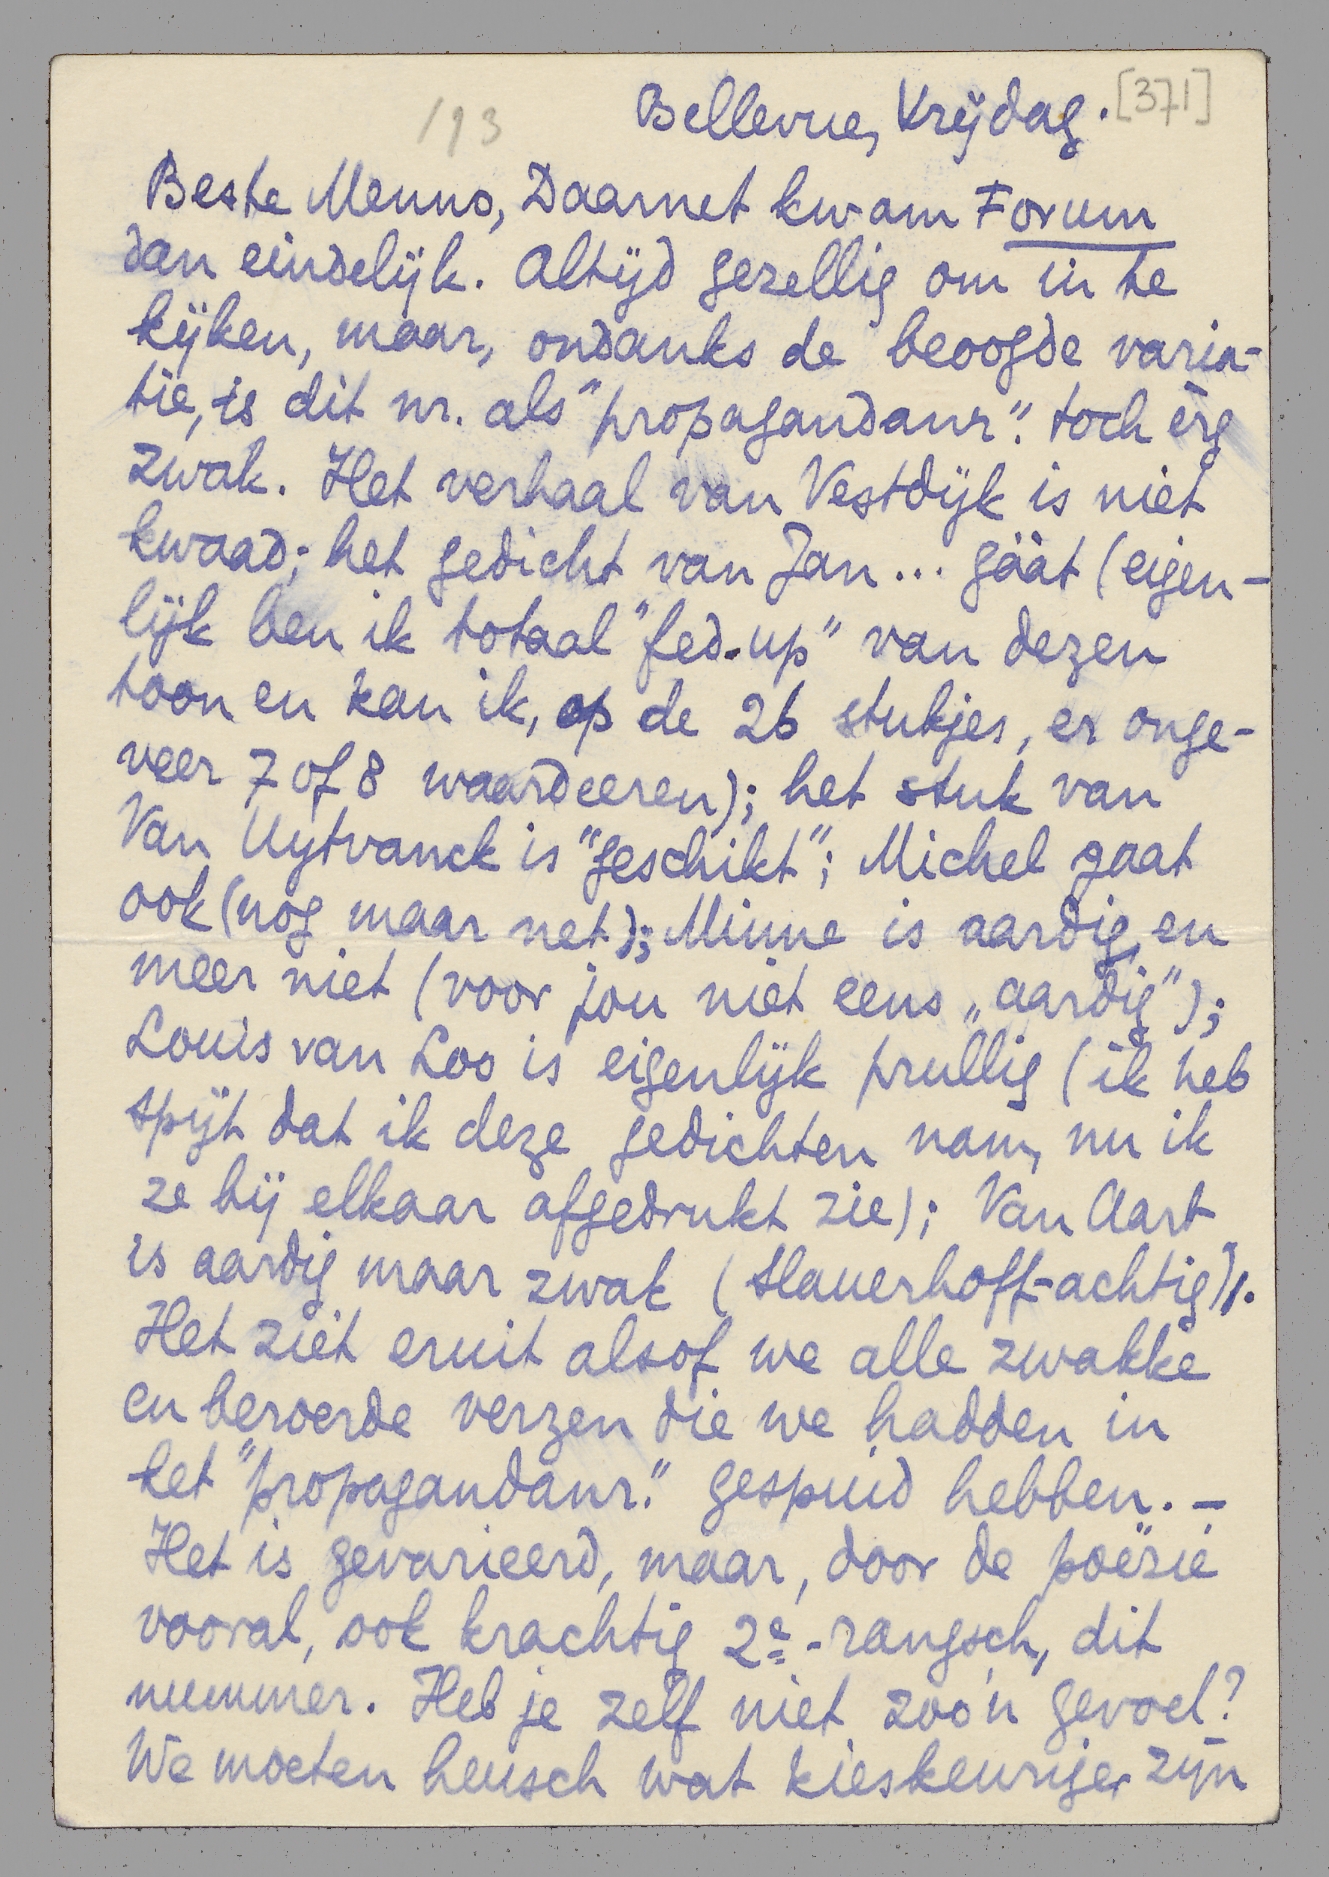 193
Bellevue, Vrijdag. [371]
Beste Menno, Daarnet kwam Forum
dan eindelijk. Altijd gezellig om in te
kijken, maar, ondanks de beoogde varia-
tie, is dit nr. als "propagandanr." toch erg
zwak. Het verhaal van Vestdijk is niet
kwaad; het gedicht van Jan... gáát (eigen-
lijk ben ik totaal "fed-up" van dezen
toon en kan ik, op de 26 stukjes, er onge-
veer 7 of 8 waardeeren); het stuk van
Van Uytvanck is "geschikt"; Michel gaat
ook (nog maar net); Minne is aardig en
meer niet (voor jou niet eens „aardig");
Louis van Loo is eigenlijk prullig (ik heb
spijt dat ik deze gedichten nam, nu ik
ze bij elkaar afgedrukt zie); Van Aart
is aardig maar zwak (Slauerhoff-achtig).
Het ziet eruit alsof we alle zwakke
en beroerde verzen die we hadden in
het "propagandanr." gespuid hebben. –
Het is gevarieerd, maar, door de poëzie
vooral, ook krachtig 2e-rangsch, dit
nummer. Heb je zelf niet zoo'n gevoel?
We moeten heusch wat kieskeuriger zijn